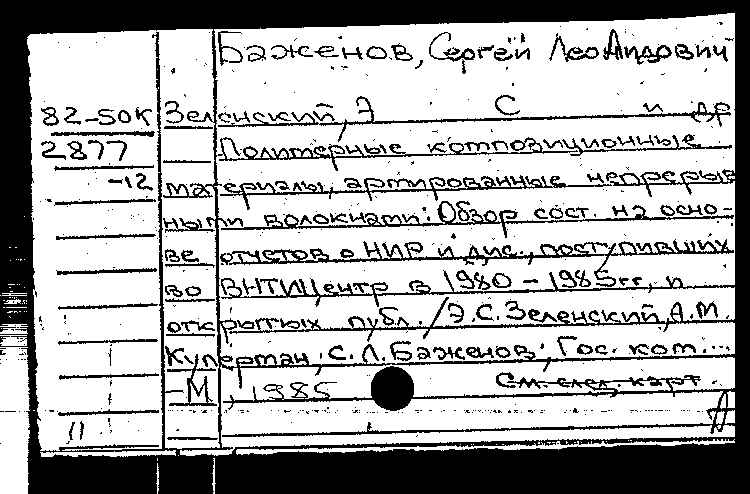 Баженов, Сергей Леонидович
82-50К Зеленский, Э С и др
2877 Полимерные композиционные
-12 материалы, армированные непрерыв
ными волокнами: Обзор сост. на осно-
ве отчетов о НИР и дис., поступивших
во ВНТИЦентр в 1980-1985гг, и
открытых публ. / Э.С. Зеленский, А.М.
Куперман, С.Л. Баженов; Гос. ком...
-М, 1985 См. след. карт.
11